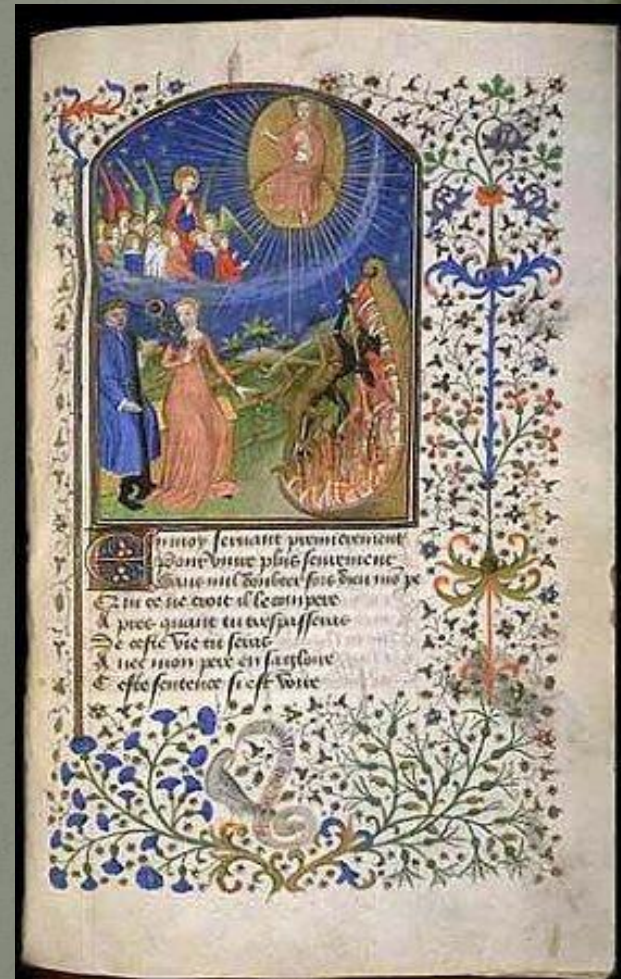 En moy servant premierement
Pour vivre plus seurement
Sans nul doubter fors dieu mo pe
Qui ce ne croit il le compere
Apres quant tu trespasseras
De ceste vie tu seras
Avec mon pere en sa gloire
Ceste sentence si est voire